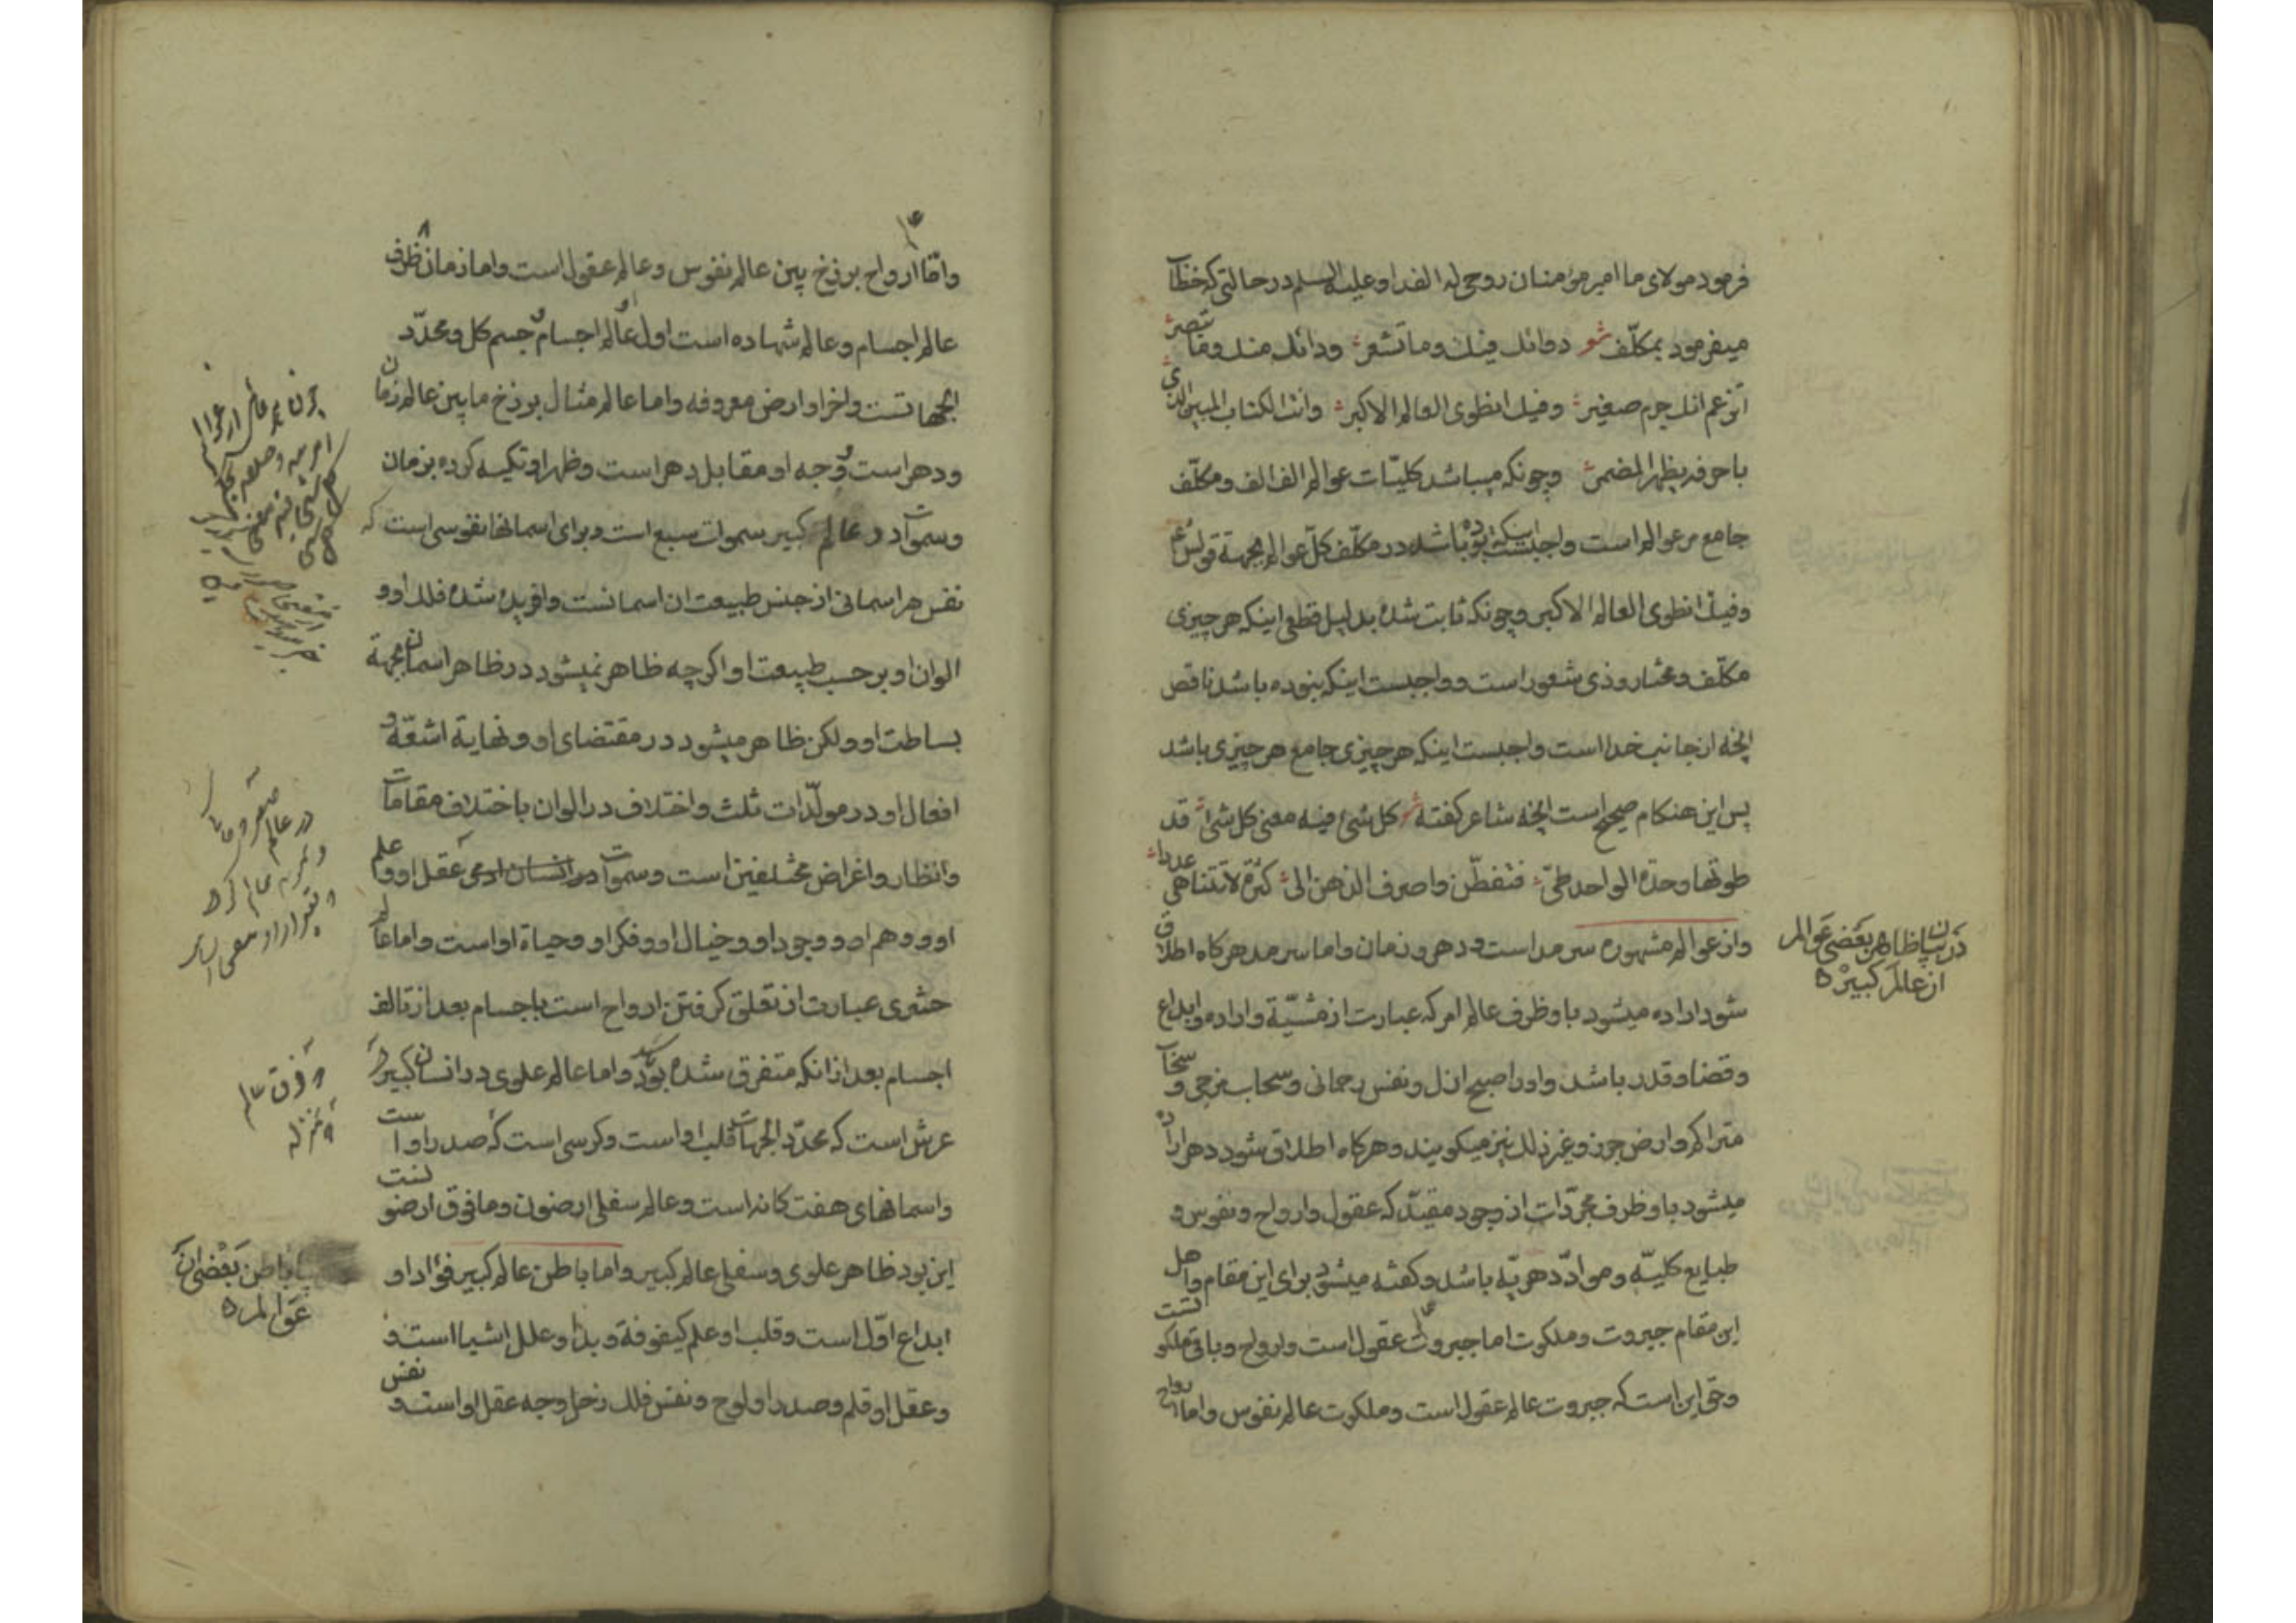 فرمود مولای ما امیر مؤمنان روحی له الفدا و علیه السلم در حالتی که خطاب
میفرمود بمکلّف شو دوائك فیك وما تشعر ودائك منك وما تبصر
اتزعم انك جرم صغیر وفیك انطوی العالم الاکبر وانت الکتاب المبین الذی
باحرفه یظهر المضمر وچونکه میباشد کلیّات عوالم الف الف و مکلّف
جامع مر عوالم است واجبست اینکه بوده باشد در مکلّف کلّ عوالم بجهة قولش ع
وفیك انطوی العالم الاکبر وچونکه ثابت شده بدلیل قطعی اینکه هر چیزی
مکلّف و مختار و ذی شعور است و واجبست اینکه بنوده باشد ناقص
انچه از جانب خدا است واجبست اینکه هر چیزی جامع هر چیزی باشد
پس این هنکام صحیح است انچه شاعر کفته شو کل شئ فیه معنی کل شئ قد
طوتها وحدة الواحد طیّ فتفطّن واصرف الذهن الی کثرة لا تتناهی عددا
واز عوالم مشهوره سرمد است و دهر و زمان واما سرمد هرکاه اطلاق
شود اراده میشود با و ظرف عالم امر که عبارت از مشیّة و اراده و ابداع
و قضا و قدر باشد واورا صبح ازل و نفس رحمانی و سحاب مزجی و سحاب
متراکم و ارض جرز و غیر ذلك نیز میکویند و هرکاه اطلاق شود دهر اراده
میشود با و ظرف مجرّدات از وجود مقیّد که عقول و ارواح و نفوس و
طبایع کلیّه و موادّ دهریّه باشد و کفته میشود برای این مقام و اهل
این مقام جبروت و ملکوت اما جبروت عقول است و ارواح و باقی ملکوتست
و حق این است که جبروت عالم عقول است و ملکوت عالم نفوس و اما ارواح
در بیان ظاهر بعضی عوالم
از عالم کبیره
وامّا ارواح برزخ بین عالم نفوس و عالم عقول است و اما زمان ظرف
عالم اجسام و عالم شهاده است اول عالم اجسام جسم کل و محدّد
الجهاتست و اخر او ارض معروفه و اما عالم مثال برزخ مابین عالم زمان
و دهر است وجه او مقابل دهر است و ظهر او تکیه کرده بزمان
و سموات در عالم کبیر سموات سبع است و برای اسمانها نفوسی است که
نفس هر اسمانی از جنس طبیعت ان اسمانست و افریده شده فلك او و
الوان او بر حسب طبیعت او اکرچه ظاهر نمیشود در ظاهر اسمان بجهة
بساطت او ولکن ظاهر میشود در مقتضای او و نهایة اشعّه و
افعال او در مولّدات ثلث و اختلاف در الوان باختلاف مقامات
و انظار و اغراض مختلفین است و سموات در انسان ادمی عقل او و علم
او و وهم او و وجود او و خیال او و فکر او و حیاة او است و اما عالم
حشری عبارت از تعلق کرفتن ارواح است باجسام بعد از تالف
اجسام بعد از انکه متفرق شده بود و اما عالم علوی در انسان کبیر
عرش است که محدّد الجهات قلب او است و کرسی است که صدر او است
و اسمانهای هفت کانه است و عالم سفلی ارضون و مافوق ارضو
این بود ظاهر علوی و سفلی عالم کبیر و اما باطن عالم کبیر فؤاد او
ابداع اوّل است و قلب او علم کیفوفة و بدا و علل اشیا است و
و عقل او قلم و صدر او لوح و نفس فلك زحل وجه عقل او است و نفس
باطن بعضی از
عوالم